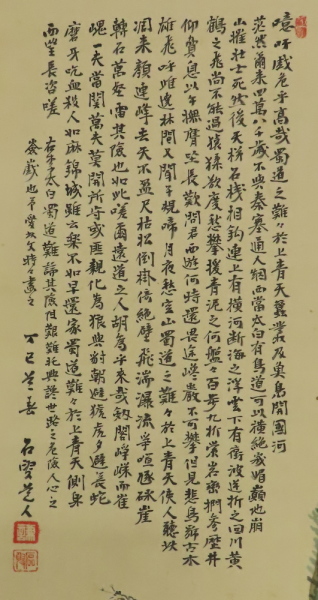 噫吁戲危乎高哉蜀道之難々於上青天蠶叢及魚鳧開國何
茫然爾來四萬八千歲不與秦塞通人烟西當太白有鳥道可以橫絕峨嵋巔地崩
山摧壯士死然後天梯石棧相鈎連上有橫河斷海之浮雲下有衝波逆折之回川黃
鶴之飛尚不能過猿猱欲度愁攀援青泥之何盤々百步九折縈岩巒捫參歷井
仰脅息以手撫膺坐長歎問君西遊何時還畏途巉巖不可攀但見悲鳥號古木
雄飛呼雌遶林間又聞子規啼月夜愁空山蜀道之難々於上青天使人聽此
凋朱顏連峰去天不盈尺枯松倒掛倚絕壁飛湍瀑流爭喧豗砯崖
轉石萬壑雷其險也如此嗟爾遠道之人胡為乎來哉劍閣崢嶸而崔
嵬一夫當關萬夫莫開所守或匪親化為狼與豺朝避猛虎夕避長蛇
磨牙吮血殺人如麻錦城雖云樂不如早還家蜀道難々於上青天側身
西望長咨嗟
右李太白蜀道難誦其危阻艱難世路之危險人心之
丁巳暮春